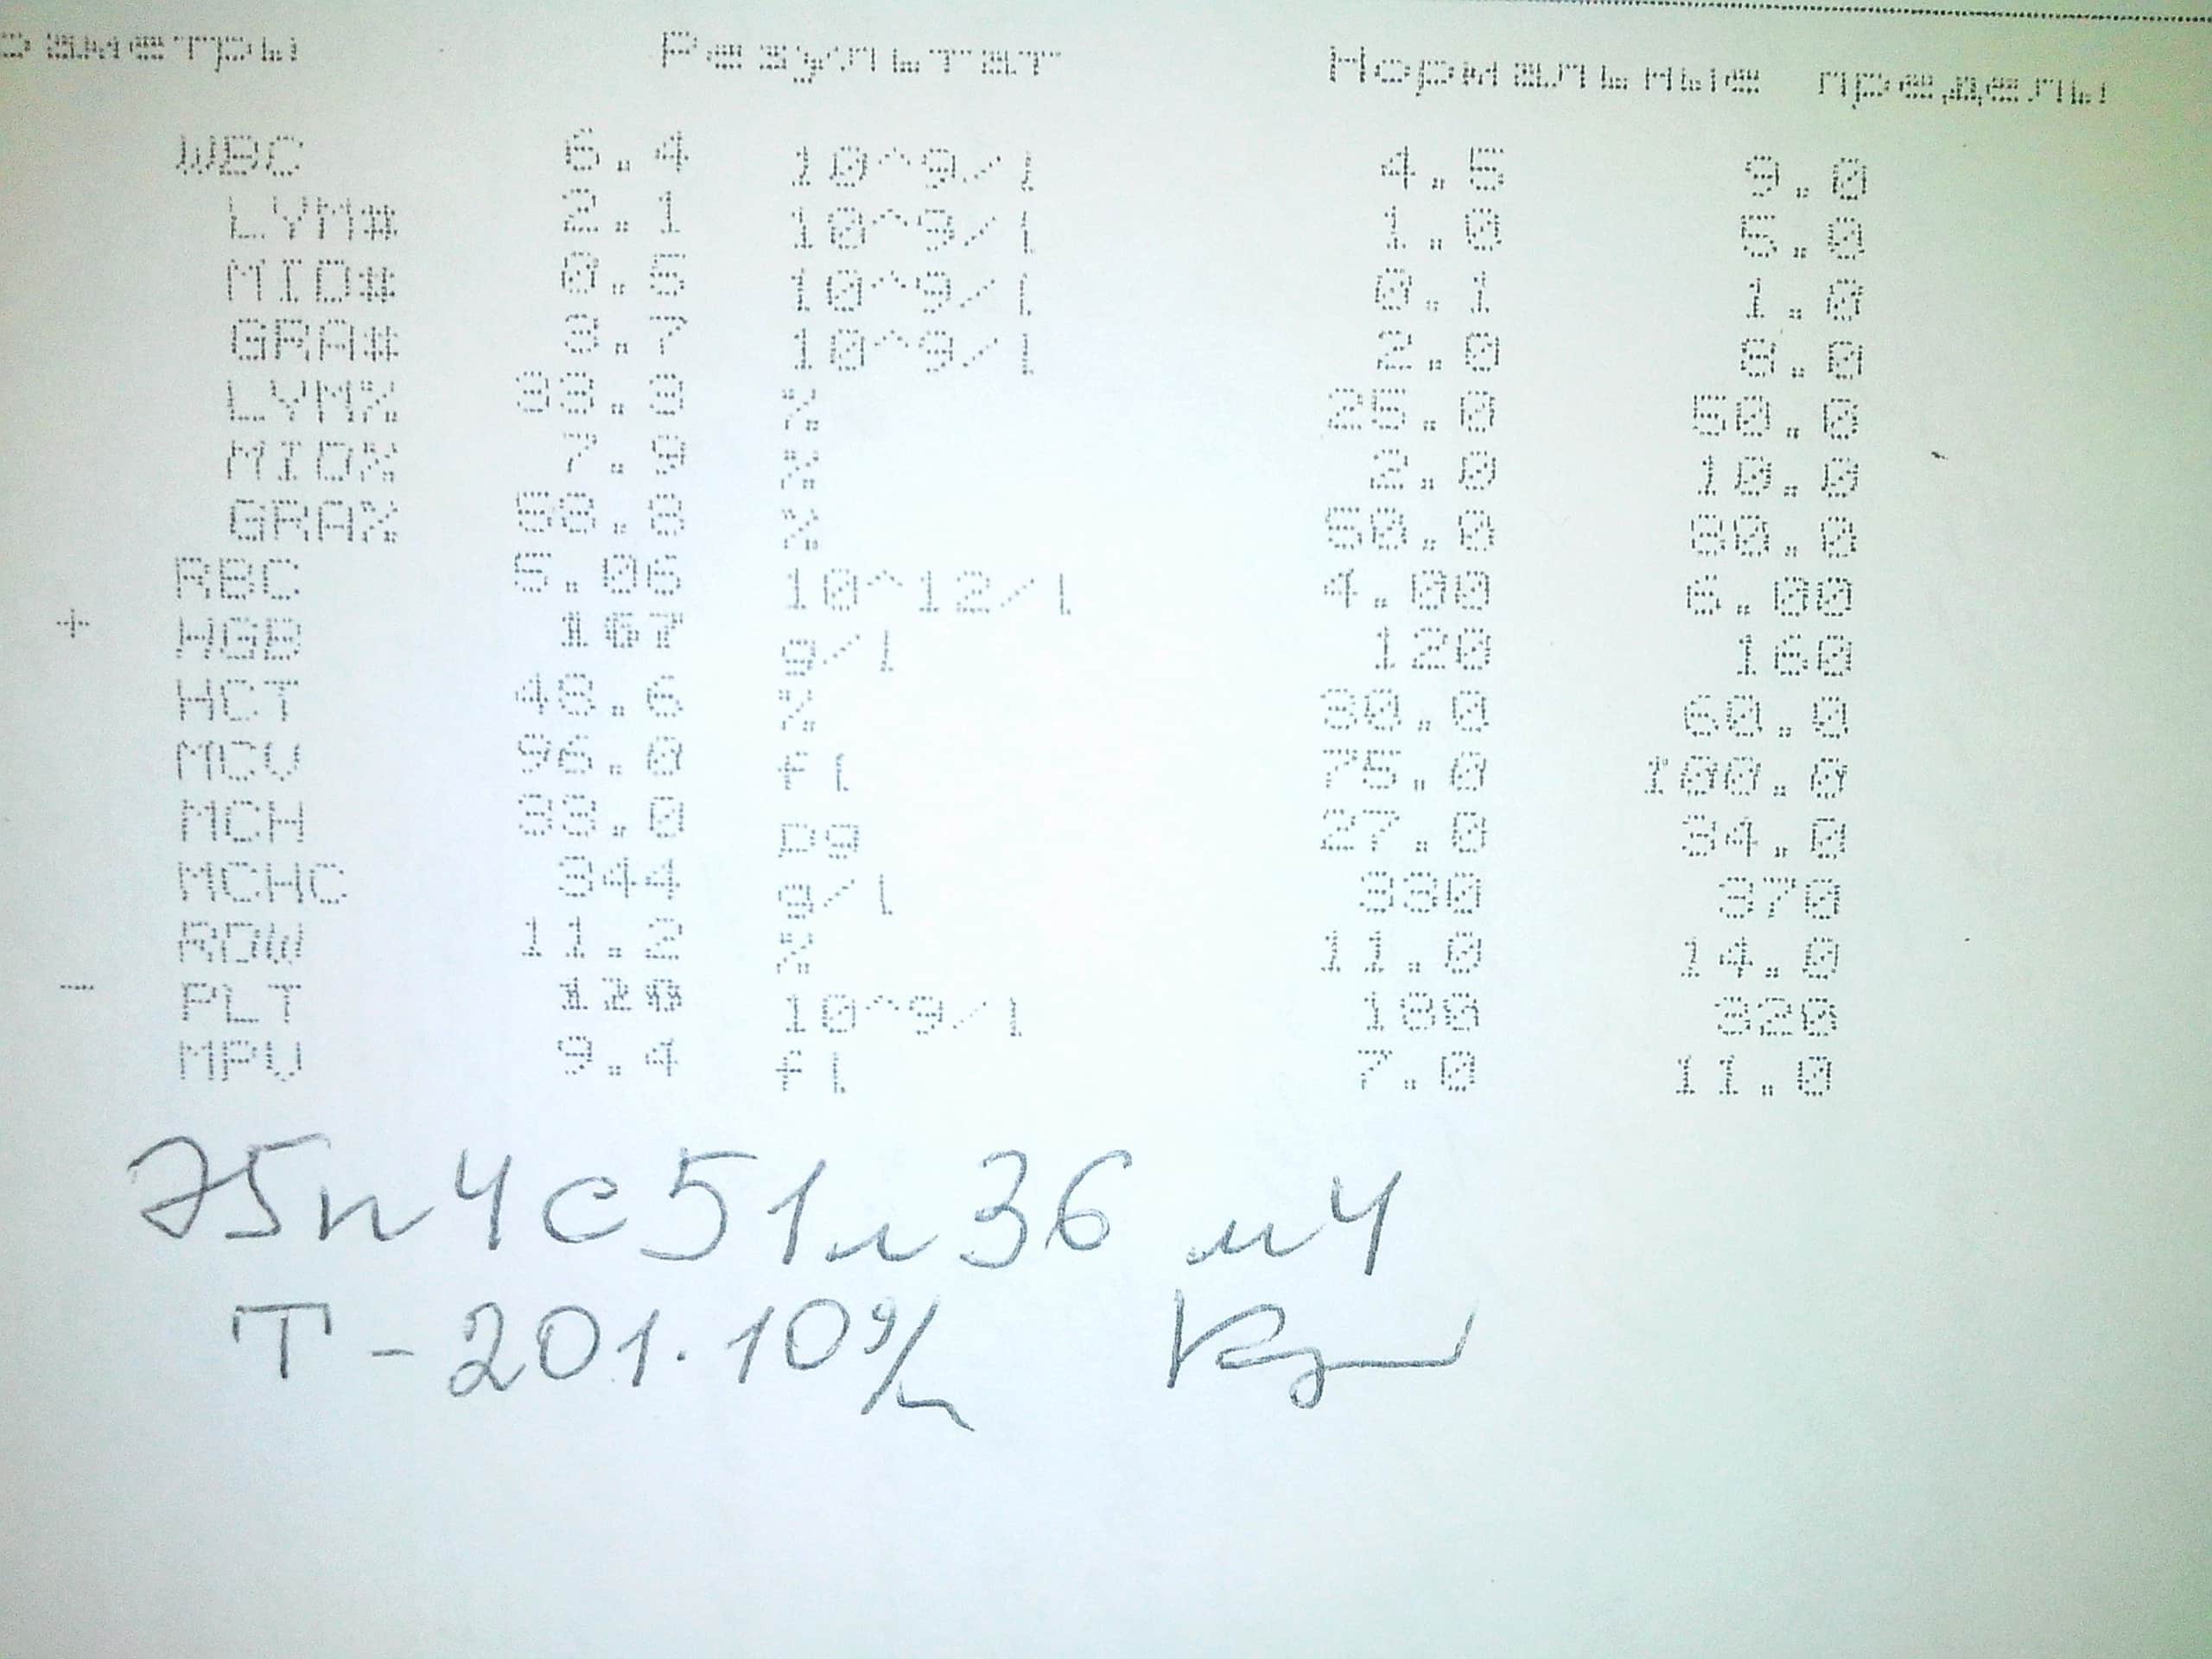 раметры Результат Нормальные пределы
WBC 6.4 10^9/l 4.5 9.0
LYM# 2.1 10^9/l 1.0 5.0
MID# 0.5 10^9/l 0.1 1.0
GRA# 3.7 10^9/l 2.0 8.0
LYM% 33.3 % 25.0 50.0
MID% 7.9 % 2.0 10.0
GRA% 58.8 % 50.0 80.0
RBC 5.06 10^12/l 4.00 6.00
+ HGB 167 g/l 120 160
HCT 48.6 % 30.0 60.0
MCV 96.0 fl 75.0 100.0
MCH 33.0 pg 27.0 34.0
MCHC 344 g/l 330 370
RDW 11.2 % 11.0 14.0
- PLT 10^9/l 180 320
MPV 9.4 fl 7.0 11.0
э5 п4 с51 л36 м4
Т - 201·10⁹/л